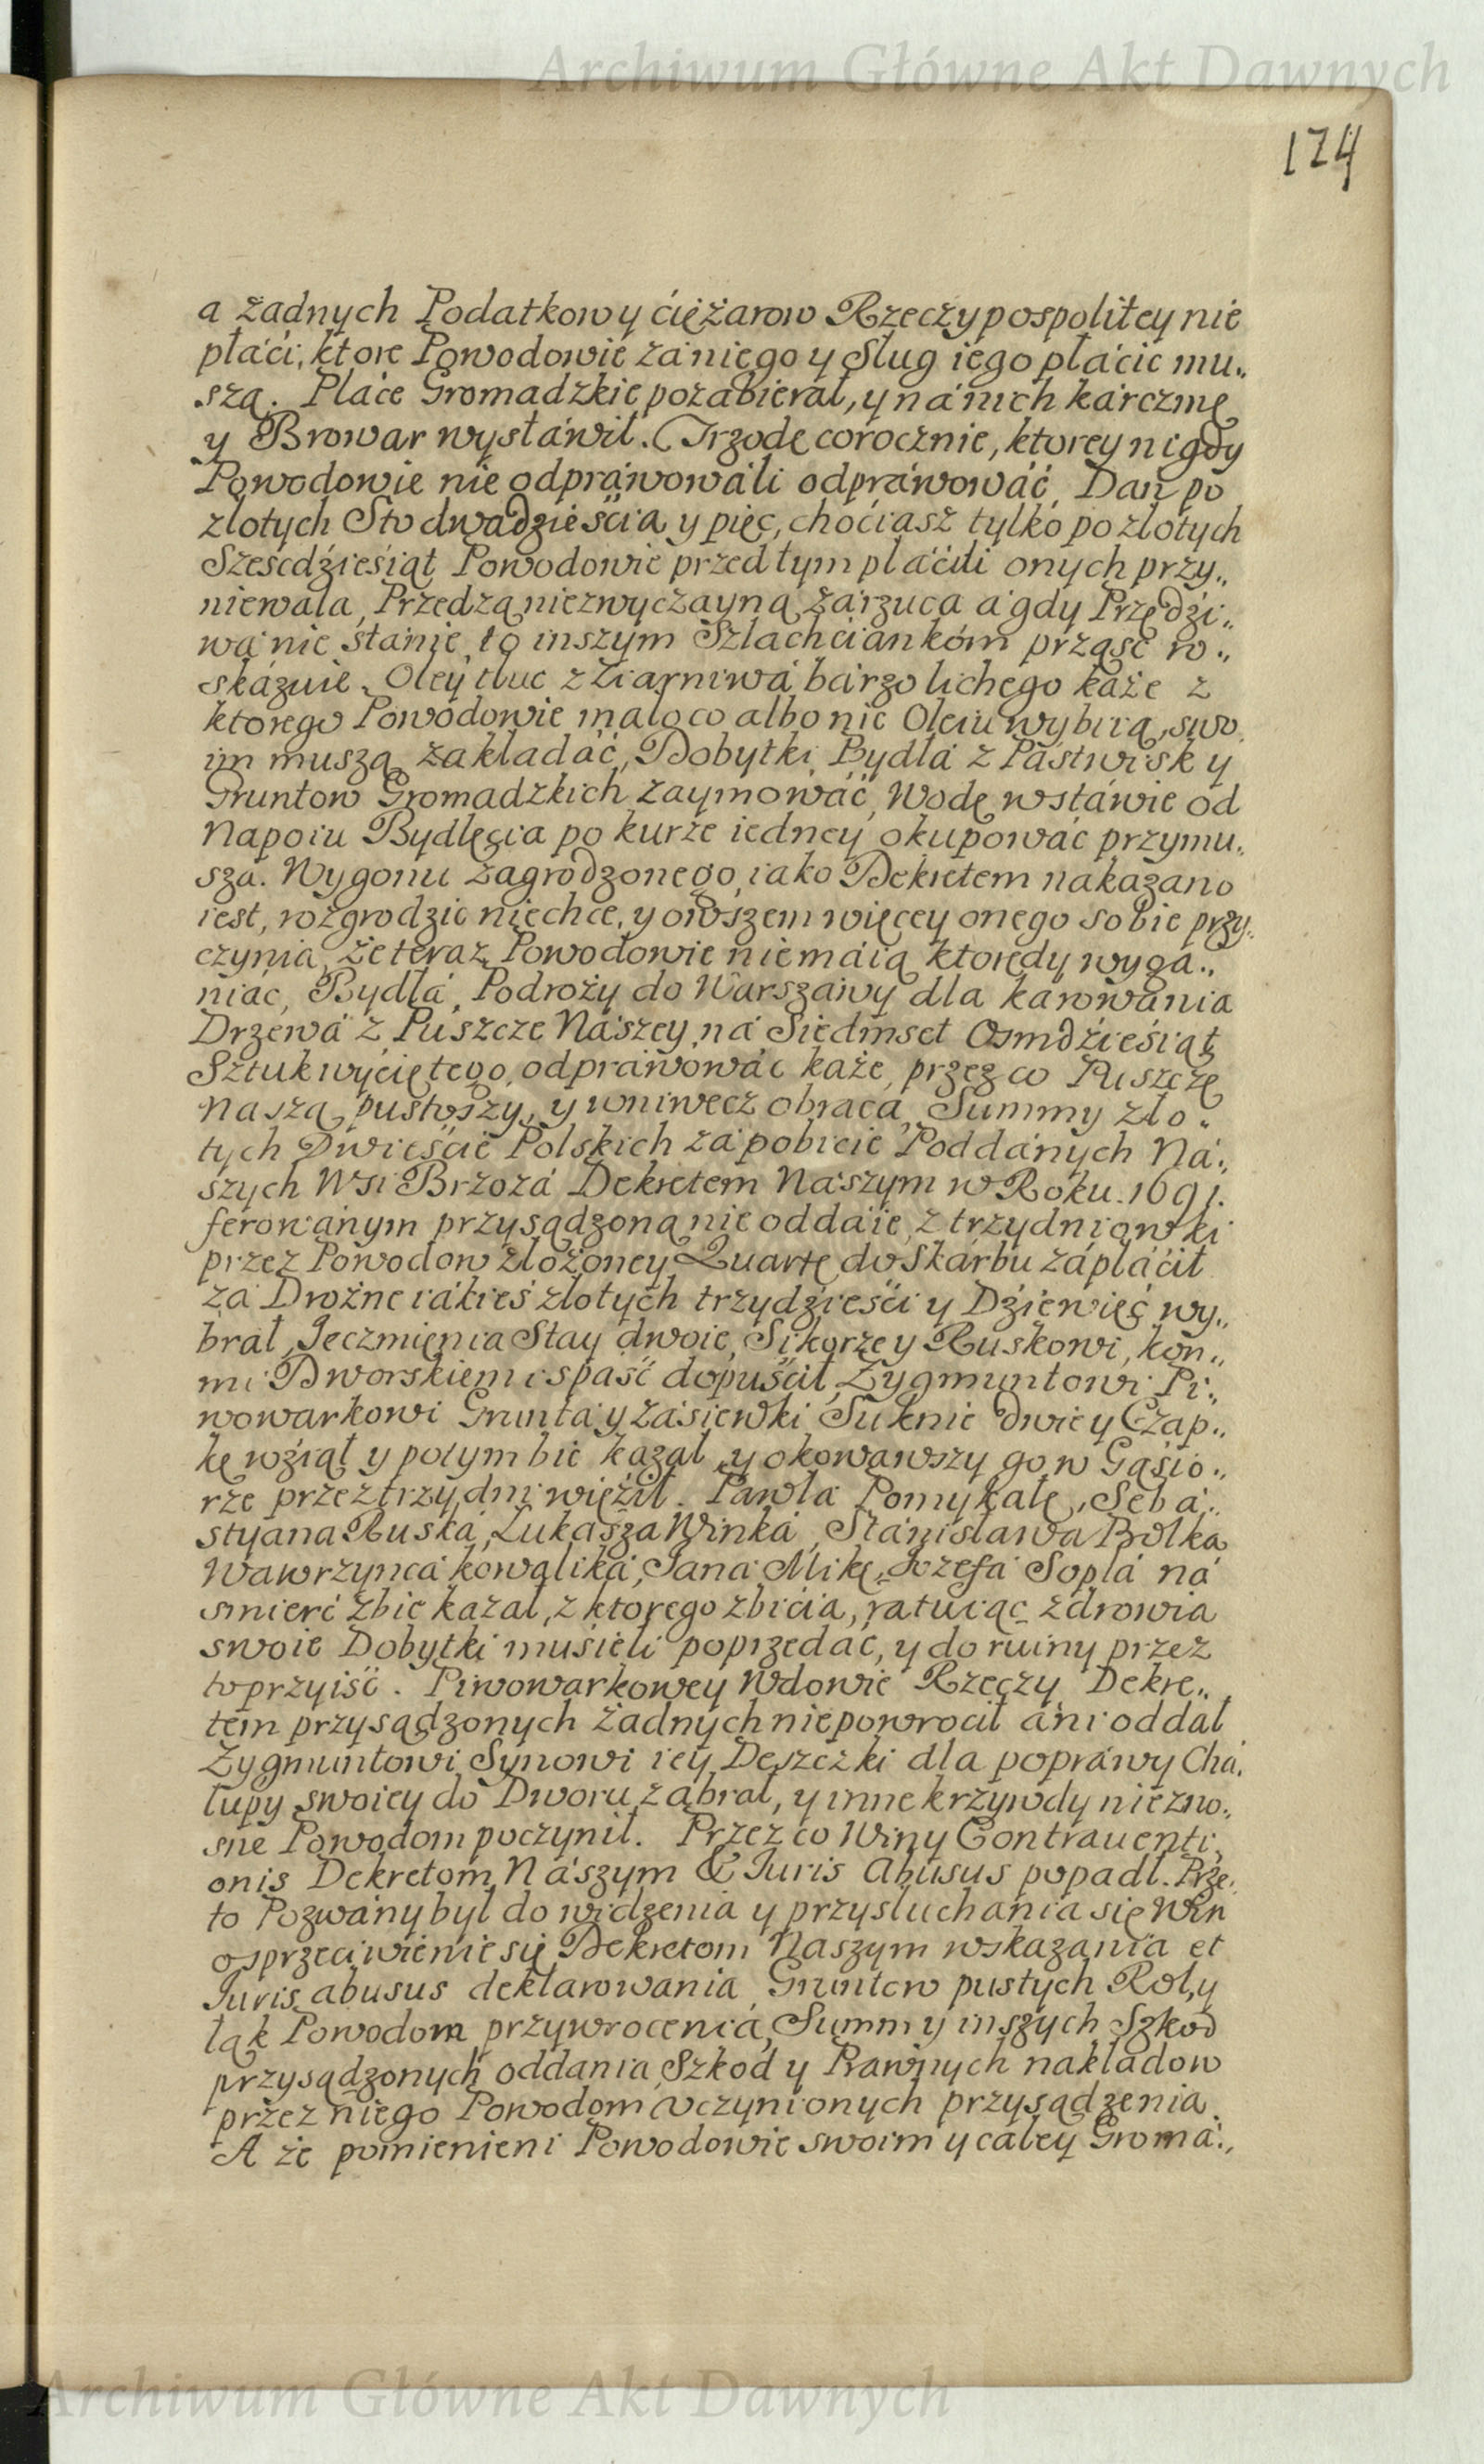 Archiwum Główne Akt Dawnych
124
a żadnych Podatkow y ćięźarow Rzeczypospolitey nie
płáći, ktore Powodowie zá niego y Sług iego płácić mu„
szą. Pláce Gromadzkie pozabierał, y ná nich kárczmę
y Browar wystáwił. Trzodę corocznie, ktorey nigdy
Powodowie nie odpráwowáli odpráwowáć, Dań po
złotych Sto dwadzieścia y pięć, choćiasz tylko po złotych
Sześćdźieśiąt Powodowie przed tym płáćili onych przy„
niewala, Przędzą niezwyczayną zárzuca á gdy Przędźi„
wá nie stánie, to inszym Szlachciankóm prząść w„
skázuie. Oley tłuc z Ziarniwá bárzo lichego każe z
ktorego Powodowie máło co albo nic Oleiu wybiią, swo„
im muszą zakładáć, Dobytki, Bydłá z Pástwisk y
Gruntow Gromadzkich zaymowáć, Wodę w stáwie od
Napoiu Bydlęcia po kurze iedney okupowáć przymu„
sza. Wygonu zagrodzonego, iako Dekretem nakazano
iest, rozgrodzić niechce, y owszem więcey onego sobie przy„
czynia, że teraz Powodowie nie máią ktorędy wyga„
niać, Bydłá, Podroży do Warszáwy dla károwánia
Drzewá z Puszcze Nászey, ná Siedmset Osmdźieśiąt
Sztuk wyciętego, odpráwowáć każe, przez co Puszczę
naszą pustoszy, y wniwecz obraca, Summy zło„
tych Dwieśćie Polskich zá pobicie Poddánych Ná„
szych Wsi Brzozá Dekretem Naszym w Roku. 1691.
ferowánym przysądzoną nie oddáie, z trzydniowki
przez Powodow złożoney Quartę do Skárbu zápłáćił
zá Drożne iákieś złotych trzydźieśći y Dźiewięć wy„
brał, Jęczmienia Stay dwoie, Sikorze y Ruskowi, kon„
mi Dworskiemi spaść dopuśćił, Zygmuntowi Pi„
wowarkowi Grunta y zásiewki Suknie dwie y Czap„
kę wźiął y potym bić kazał, y okowawszy go w Gąsio„
rze przez trzy dni więźił. Páwłá Pomykałę, Sebá„
styana Ruská, Łukaszá Winká, Stánisława Bolka
Wawrzyńcá kowaliká, Janá Mikę, Jozefá Soplá ná
smierć zbić kazał, z ktorego zbicia, ratuiąc zdrowia
swoie Dobytki musieli poprzedać, y do ruiny przez
to przyiść. Piwowarkowey Wdowie Rzeczy, Dekre„
tem przysądzonych żadnych nie powroćił áni oddał
Zygmuntowi Synowi iey Deszczki dla popráwy Chá„
łupy swoiey do Dworu zábrał, y inne krzywdy niezno„
sne Powodom poczynił. Przez co Winy Contrauenti„
onis Dekretom Nászym & Iuris Abusus popadł. Prze„
to Pozwány był do widzenia y przysłuchánia się Win
o sprzeciwienie się Dekretom Naszym wskazánia et
Iuris abusus deklarowania, Gruntow pustych Rol, y
łąk Powodom przywrocenia, Summ y inszych Szkod
przysądzonych oddania, Szkod y Prawnych nakładow
przez niego Powodom vczynionych przysądzenia.
A że pomienieni Powodowie swoim y całey Gromá„
Archiwum Główne Akt Dawnych